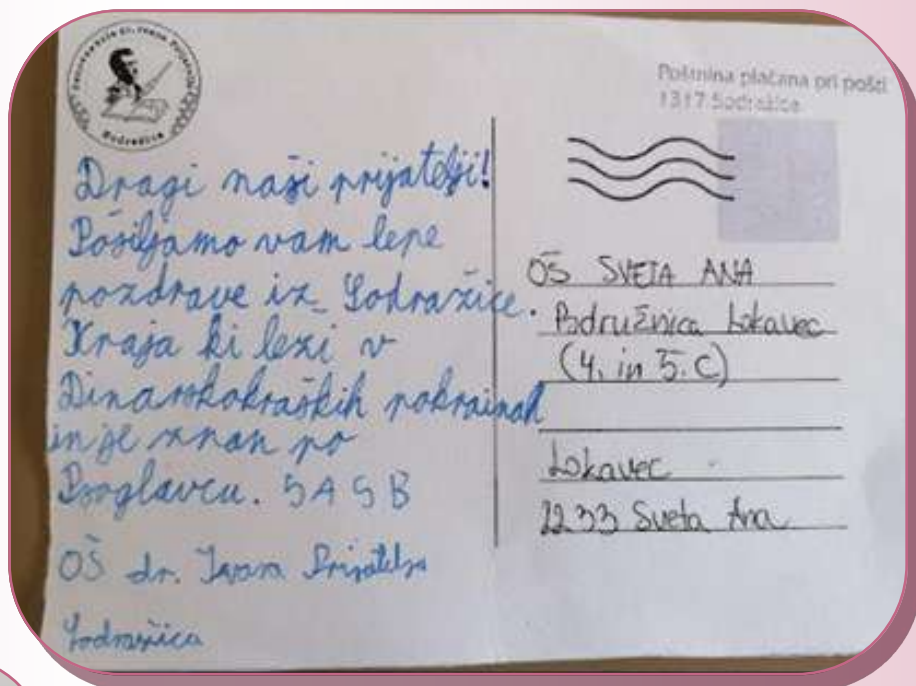 Sodražica
Poštnina plačana pri pošti
1317 Sodražica
Dragi naši prijatelji!
Pošiljamo vam lepe
pozdrave iz Sodražice.
Kraja ki leži v
Dinarskokraških pokrainah
in je znan po
5A 5B
OŠ dr. Ivana Prijatelja
Sodražica
OŠ SVETA ANA
Podružnica Lokavec
(4. in 5. C)
Lokavec
2233 Sveta Ana